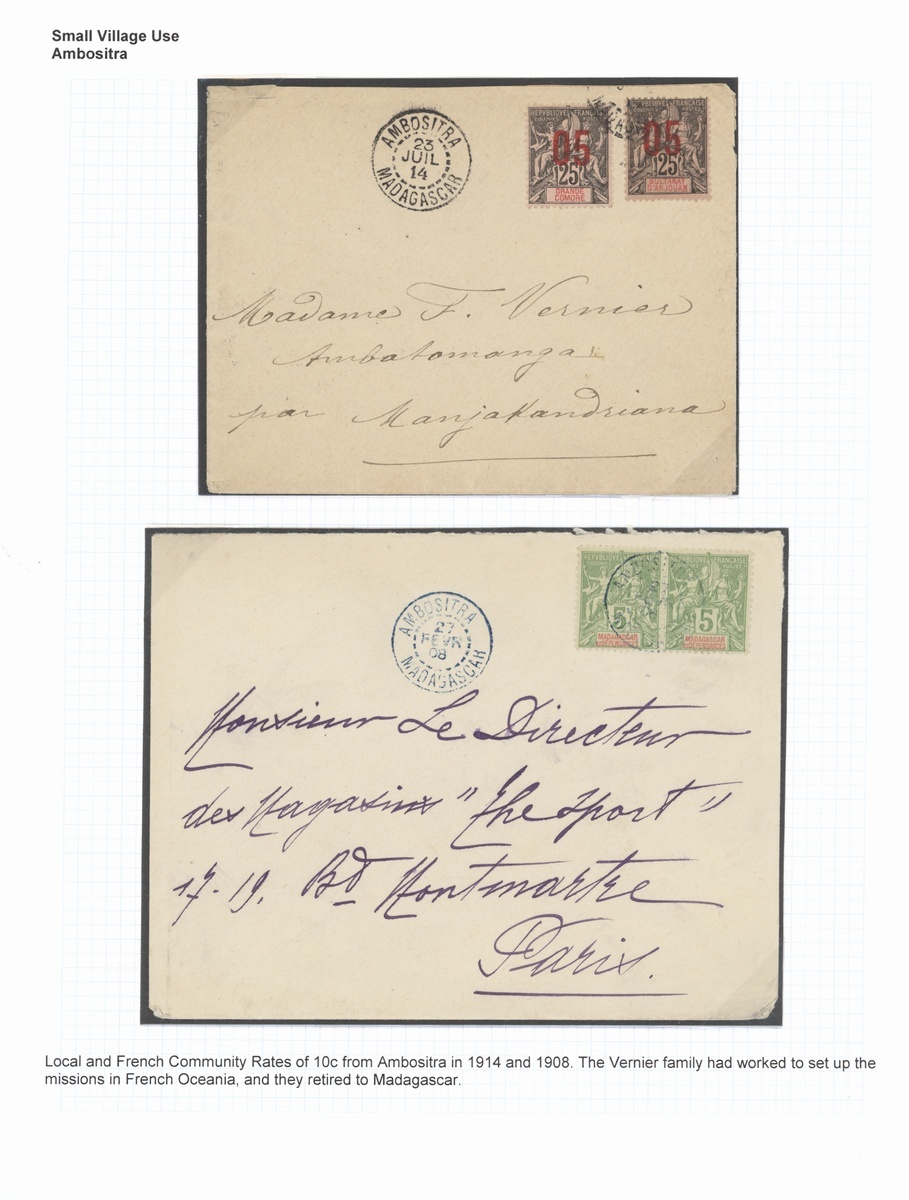 Small Village Use
Ambositra
AMBOSITRA
23
JUIL
14
MADAGASCAR
REPUBLIQUE FRANÇAISE
05
25
GRANDE
COMORE
REPUBLIQUE FRANÇAISE
05
25
SULTANAT
D'ANJOUAN
Madame F. Vernier
Ambatomanga
par Manjakandriana
AMBOSITRA
27
FEVR
08
MADAGASCAR
REPUBLIQUE FRANÇAISE
5
MADAGASCAR
ET DÉPENDANCES
REPUBLIQUE FRANÇAISE
5
MADAGASCAR
ET DÉPENDANCES
Monsieur Le Directeur
des Magasins "The Sport"
17-19. Bd Montmartre
Paris.
Local and French Community Rates of 10c from Ambositra in 1914 and 1908. The Vernier family had worked to set up the
missions in French Oceania, and they retired to Madagascar.